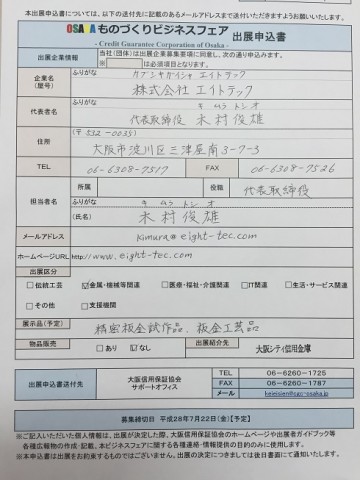 本出展申込書については、以下の送付先に記載のあるメールアドレスまで送付いただきますようお願いいたします。
OSAKAものづくりビジネスフェア 出展申込書
- Credit Guarantee Corporation of Osaka -
出展企業情報
当社(団体)は出展企業募集要項に同意し、次の通り申込みます。
※ は必須項目となります。
企業名
(屋号)
ふりがな カブシキガイシャ エイトテック
株式会社 エイトテック
代表者名
ふりがな キムラ トシオ
代表取締役 木村俊雄
住所
(〒532-0035)
大阪市淀川区三津屋南3-7-3
TEL 06-6308-7517 FAX 06-6308-7526
担当者名
所属 役職 代表取締役
ふりがな キムラ トシオ
(氏名) 木村俊雄
メールアドレス kimura@eight-tec.com
ホームページURL http://www.eight-tec.com
出展区分
□伝統工芸 ☑金属・機械等関連 □医療・福祉・介護関連 □IT関連 □生活・サービス関連
□その他 □支援機関
展示品(予定)
精密板金試作品、板金工芸品
物品販売 □あり ☑なし 出展紹介先 大阪シティ信用金庫
出展申込書送付先
大阪信用保証協会
サポートオフィス
TEL 06-6260-1725
FAX 06-6260-1787
メール keieisien@cgc-osaka.jp
募集締切日 平成28年7月22日(金)【予定】
※ご記入いただいた個人情報は、出展が決定した際、大阪信用保証協会のホームページや出展者ガイドブック等
各種広報物の作成・記載、本ビジネスフェアに関する各種連絡・情報提供の目的のみに使用します。
※本申込書は出展をお約束するものではございません。出展の決定につきましては後日書面にて通知いたします。